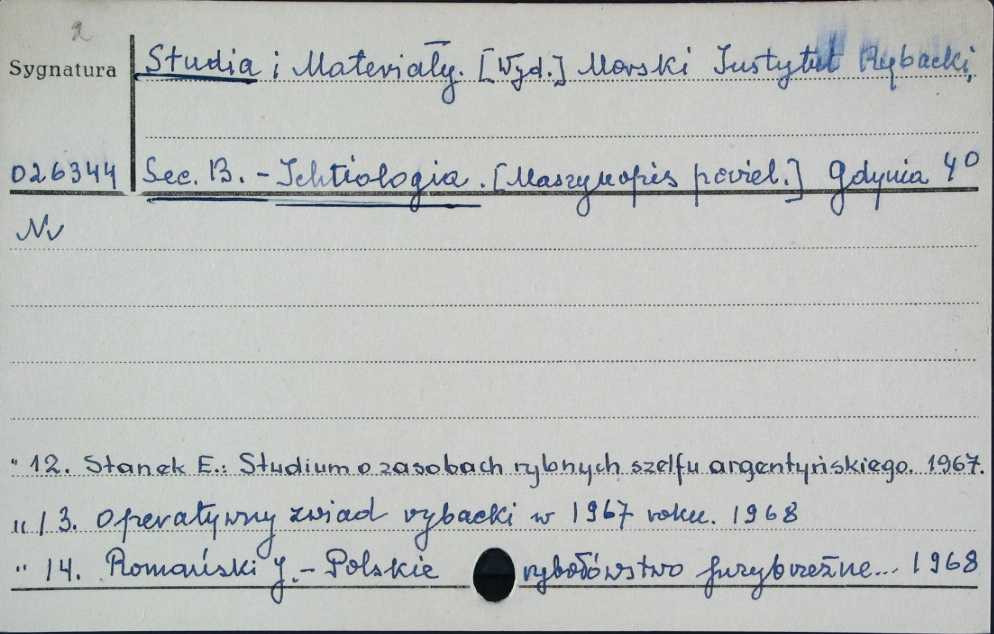 2
Sygnatura Studia i Materiały. [Wyd.] Morski Instytut Rybacki,
026344 Sec. B. - Ichtiologia. [Maszynopis powiel.] Gdynia 4°
Nr
" 12. Stanek E.: Studium o zasobach rybnych szelfu argentyńskiego. 1967.
" 13. Operatywny zwiad rybacki w 1967 roku. 1968
" 14. Romański J. - Polskie rybołówstwo przybrzeżne... 1968